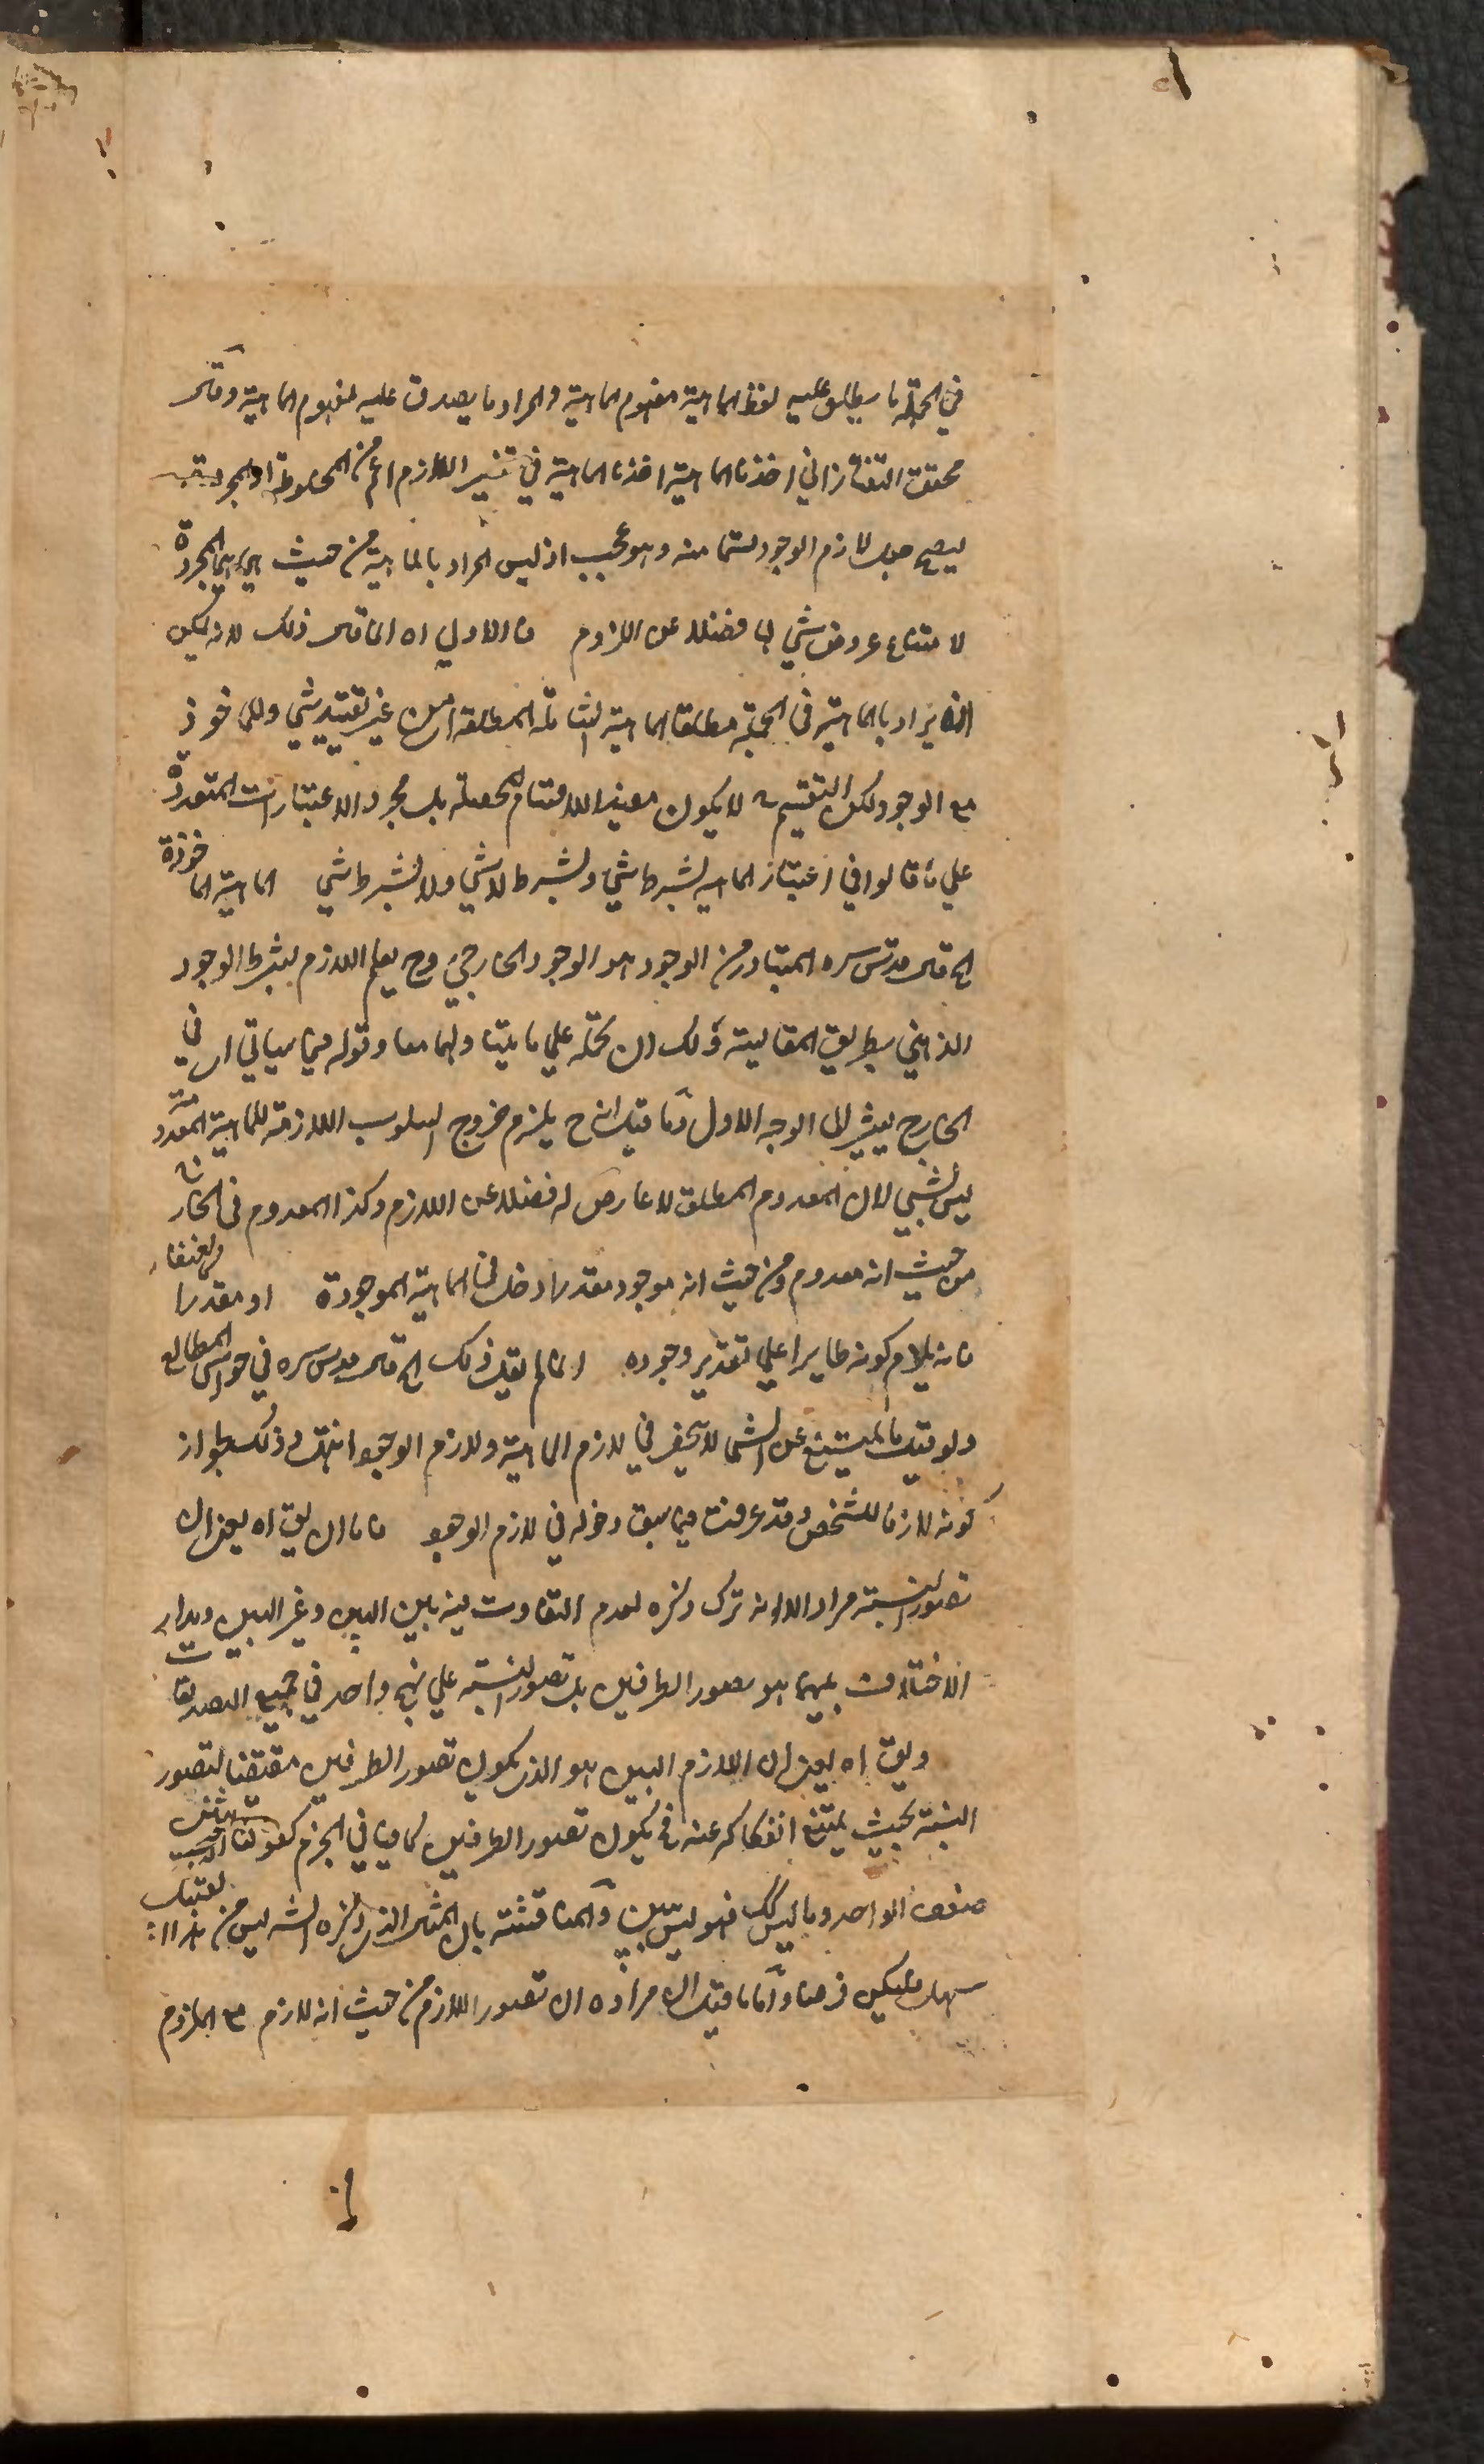 في الجملة ما يطلق عليه لفظ الماهية مفهوم الماهية والمراد ما يصدق عليه مفهوم الماهية وقال
محقق التفتازاني اخذنا الماهية اخذنا الماهية في تفسير اللازم اعم من المخلوطة او المجردة
ليصح جعل لازم الوجود قسما منه وهو عجيب اذ ليس المراد بالماهية من حيث هي هي المجردة
لامتناع عروض شي لها فضلا عن اللزوم فالاولى اه انما قال ذلك لانه يمكن
ان يراد بالماهية في الجملة مطلق الماهية الشاملة المطلقة اي من غير تقييد بشي وللماخوذ
مع الوجود لكن التقسيم ح لا يكون مفيدا للاقسام المحصلة بل مجرد الاعتبارات المتعددة
علي ما قالوا في اعتبار الماهية بشرط شي وبشرط لا شي ولا بشرط شي الماهية الماخوذة
الخ قال قدس سره المتبادر من الوجود هو الوجود الخارجي وح يعلم اللازم بشرط الوجود
الذهني بطريق المقايسة ولك ان تحمله علي ما يتناولهما معا وقوله فيما سياتي اي في
الخارج يشير الى الوجه الاول وما قيل انه ح يلزم خروج السلوب اللازمة للماهية المعدومة
ليس بشي لان المعدوم المطلق لا عارض له فضلا عن اللازم وكذا المعدوم في الخارج
من حيث انه معدوم ومن حيث انه موجود مقدرا دخل في الماهية الموجودة او مقدرا كالعنقا
فانه يلازم كونه طايرا علي تقدير وجوده انما لم يقل ذلك الخ قال قدس سره في حواشي المطالع
ولو قيل ما يمتنع عن الشي لا ينحصر في لازم الماهية ولازم الوجود انتهى وذلك لجواز
كونه لازما للشخص وقد عرفت فيما سبق دخوله في لازم الوجود فاما ان يق اه يعني ان
تصور النسبة مراد الا انه ترك ذكره لعدم التفاوت فيه بين البين وغير البين ومدار
الاختلاف بينهما هو تصور الطرفين بل تصور النسبة علي نهج واحد في جميع التصديقات
ويق اه يعني ان اللازم البين هو الذي يكون تصور الطرفين مقتضيا لتصور
النسبة بحيث يمتنع انفكاكه عنه فيكون تصور الطرفين كافيا في الجزم كقولنا الاثنين
ضعف الواحد وما ليس كك فهو ليس ببين والمناقشة بان المثال الذي ذكره الش ليس من هذا القبيل
سهل فليكن فرضا واما ما قيل ان مراده ان تصور اللازم من حيث انه لازم مع الملزوم